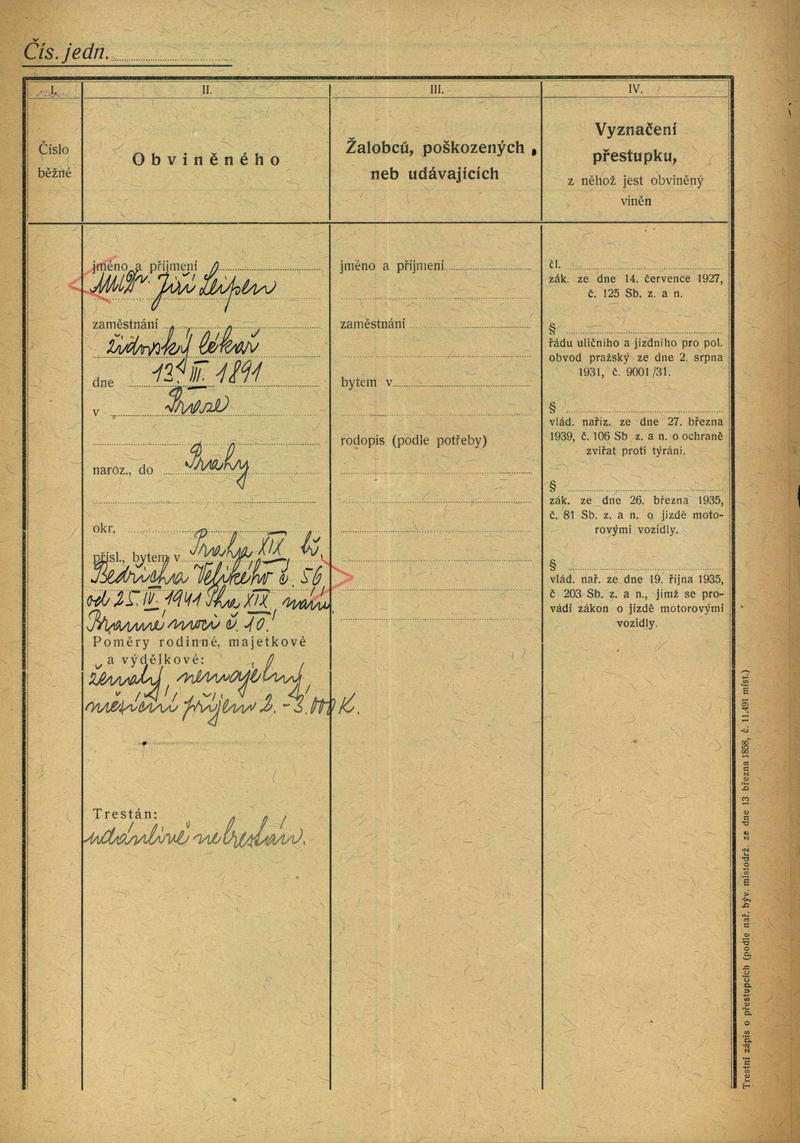 Čís. jedn.
I.
II.
III.
IV.
Číslo
běžné
Obviněného
Žalobců, poškozených,
neb udávajících
Vyznačení
přestupku,
z něhož jest obviněný
viněn
jméno a příjmení
MUDr. Jiří
zaměstnání
židovský lékař
dne 13. III. 1891
v Praze
naroz., do Prahy
okr.
přísl., bytem v Praha XIX
Bedřicha Velikého č. 56,
od 25. IV. 1941 Pha XIX,
č. 10.
Poměry rodinné, majetkové
a výdělkové:
ženatý, nemajetný,
měsíční příjem 2.-3.000 K.
Trestán:
udánlivě netrestán.
jméno a příjmení
zaměstnání
bytem v
rodopis (podle potřeby)
čl.
zák. ze dne 14. července 1927,
č. 125 Sb. z. a n.
§
řádu uličního a jízdního pro pol.
obvod pražský ze dne 2. srpna
1931, č. 9001/31.
§
vlád. naříz. ze dne 27. března
1939, č. 106 Sb z. a n. o ochraně
zvířat proti týrání.
§
zák. ze dne 26. března 1935,
č. 81 Sb. z. a n. o jízdě moto-
rovými vozidly.
§
vlád. nař. ze dne 19. října 1935,
č 203 Sb. z a n., jímž se pro-
vádí zákon o jízdě motorovými
vozidly.
Trestní zápis o přestupcích (podle nař. býv. místodrž. ze dne 13 března 1858, č. 11.491 míst.)